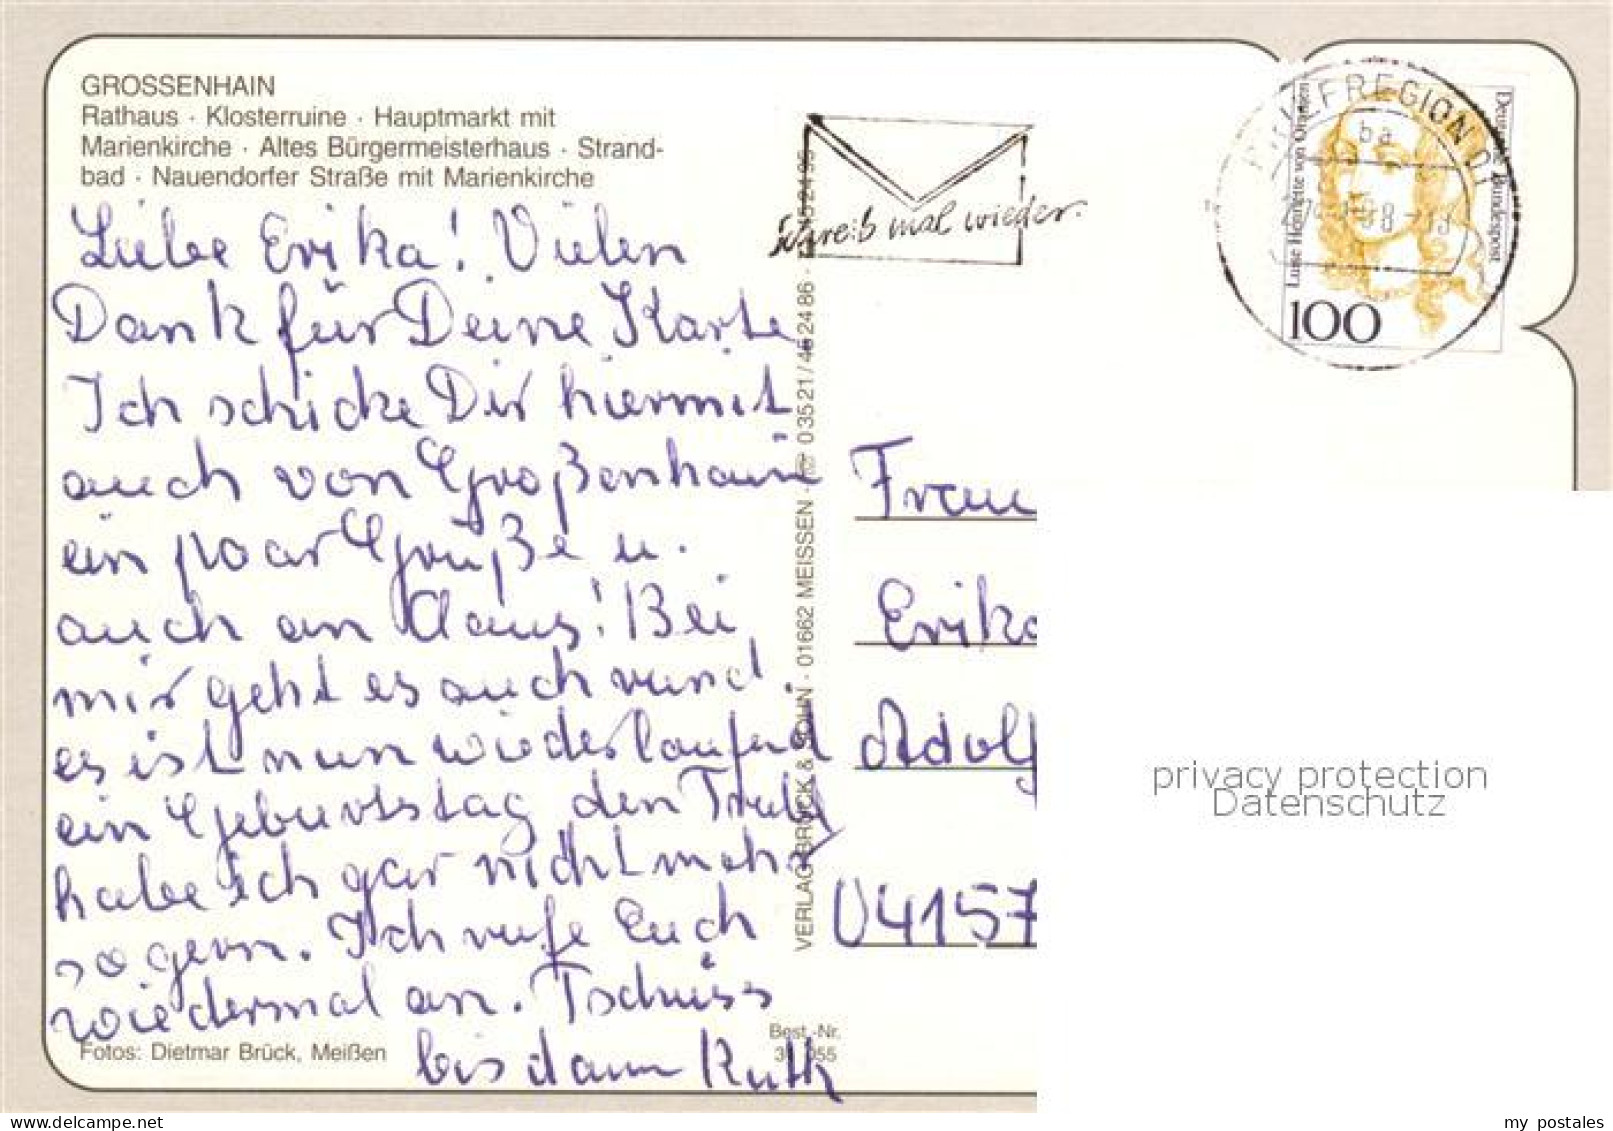 GROSSENHAIN
Rathaus · Klosterruine · Hauptmarkt mit
Marienkirche · Altes Bürgermeisterhaus · Strand-
bad · Nauendorfer Straße mit Marienkirche
Liebe Erika! Vielen
Dank für Deine Karte
Ich schicke Dir hiermit
auch von Großenhain
ein paar Grüße u.
auch an Claus! Bei
mir geht es auch rund.
es ist nun wieder laufend
ein Geburtstag den Trubel
habe ich gar nicht mehr
so gern. Ich rufe Euch
wiedermal an. Tschüss
bis dann Ruth
Fotos: Dietmar Brück, Meißen
Best.-Nr.
055
VERLAG BRÜCK & SOHN · 01662 MEISSEN · 03521/452486
Schreib mal wieder.
BRIEFREGION 01
ba
Luise Henriette von Oranien
Deutsche Bundespost
100
Frau
Erika
Adolf
04157
privacy protection
Datenschutz
www.delcampe.net
my_postales